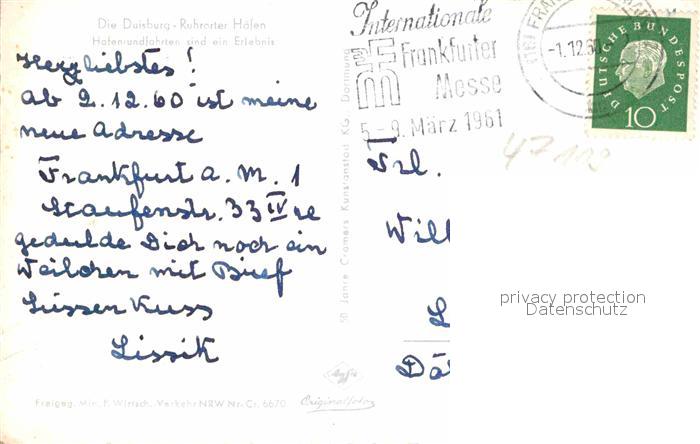 Die Duisburg-Ruhrorter Häfen
Hafenrundfahrten sind ein Erlebnis
Herzliebstes!
Ab 2.12.60 ist meine
neue Adresse
Frankfurt a. M. 1
Staufenstr. 33 IV re
gedulde Dich noch ein
Weilchen mit Brief
Süssen Kuss
Lissik
Freigeg. Min. f. Wirtsch. u. Verkehr NRW Nr. Cr. 6670
50 Jahre Cramers Kunstanstalt KG. Dortmund
Agfa
Originalfoto
Internationale
Frankfurter
Messe
5.-9. März 1961
-1.12.60
DEUTSCHE BUNDESPOST
10
Frl.
Will
L
Dä
privacy protection
Datenschutz